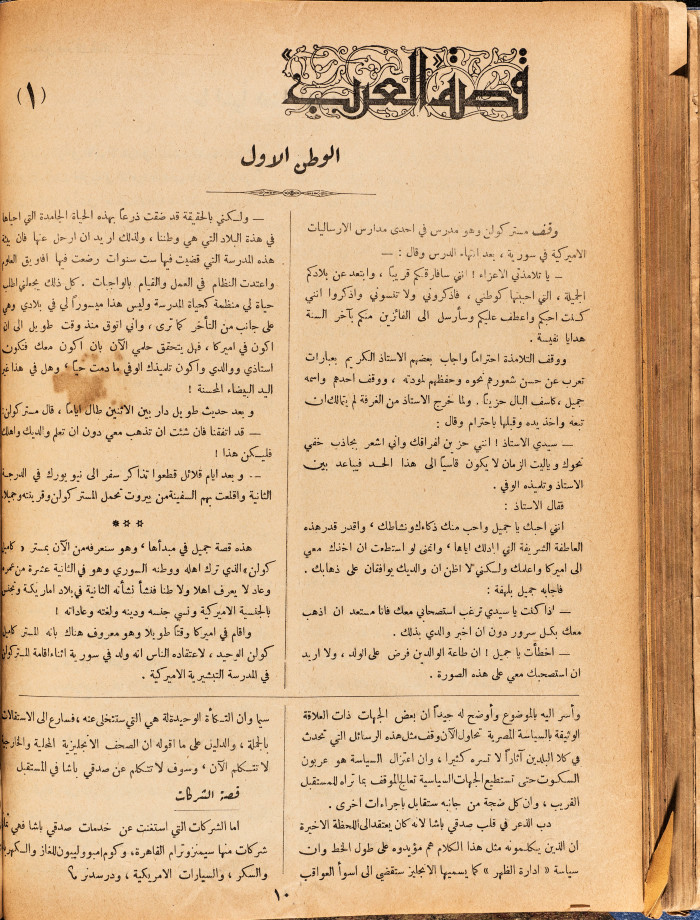 قصة العرب
(١)
الوطن الاول
وقف مستر كولن وهو مدرس في احدى مدارس الارساليات
الاميركية في سورية ، بعد انتهاء الدرس وقال : —
— يا تلامذتي الاعزاء ! انني سافارقكم قريبًا ، وابتعد عن بلادكم
الجميلة ، التي احببتها كوطني ، فاذكروني ولا تنسوني واذكروا انني
كنت احبكم واعطف عليكم وسأرسل الى الفائزين منكم بآخر السنة
هدايا نفيسة .
ووقف التلامذة احترامًا واجاب بعضهم الاستاذ الكريم بعبارات
تعرب عن حسن شعورهم نحوه وحفظهم لمودته ، ووقف احدهم واسمه
جميل ، كاسف البال حزينًا . ولما خرج الاستاذ من الغرفة لم يتمالك ان
تبعه واخذ يده وقبلها باحترام وقال :
— سيدي الاستاذ ! انني حزين لفراقك واني اشعر بجاذب خفي
نحوك وياليت الزمان لا يكون قاسيًا الى هذا الحد فيباعد بين
الاستاذ وتلميذه الوفي .
فقال الاستاذ :
انني احبك يا جميل واحب منك ذكاءك ونشاطك ، واقدر قدر هذه
العاطفة الشريفة التي ابادلك اياها ، واتمنى لو استطعت ان اخذك معي
الى اميركا واعلمك ولكنني لا اظن ان والديك يوافقان على ذهابك .
فاجابه جميل بلهفة :
— اذا كنت يا سيدي ترغب استصحابي معك فانا مستعد ان اذهب
معك بكل سرور دون ان اخبر والدي بذلك .
— اخطأت يا جميل ! ان طاعة الوالدين فرض على الولد ، ولا اريد
ان استصحبك معي على هذه الصورة .
— ولكني بالحقيقة قد ضقت ذرعًا بهذه الحياة الجامدة التي احياها
في هذة البلاد التي هي وطننا ، ولذلك اريد ان ارحل عنها فان بيئة
هذه المدرسة التي قضيت فيها ست سنوات رضعت فيها افاويق العلوم
واعتدت النظام في العمل والقيام بالواجبات . كل ذلك يجعلني اطلب
حياة لي منظمة كحياة المدرسة وليس هذا ميسورًا لي في بلادي وهي
على جانب من التأخر كما ترى ، واني اتوق منذ وقت طويل الى ان
اكون في اميركا ، فهل يتحقق حلمي الآن بان اكون معك فتكون
استاذي ووالدي واكون تلميذك الوفي ما دمت حيًا ، وهل في هذا غير
اليد البيضاء المحسنة !
وبعد حديث طويل دار بين الاثنين طال اياما ، قال مستر كولن :
— قد اتفقنا فان شئت ان تذهب معي دون ان تعلم والديك واهلك
فليكن هذا !
— وبعد ايام قلائل قطعوا تذاكر سفر الى نيويورك في الدرجة
الثانية واقلعت بهم السفينة من بيروت تحمل المستر كولن وقرينته وجميلا.
* * *
هذه قصة جميل في مبدأها ، وهو سنعرفه من الآن بمستر « كاميل
كولن » الذي ترك اهله ووطنه السوري وهو في الثانية عشرة من عمره
وعاد لا يعرف اهلا ولا طنا فنشأ نشأته الثانية في بلاد امريكة وتجنس
بالجنسية الاميركية ونسي جنسه ودينه ولغته وعاداته !
واقام في اميركا وقتًا طويلا وهو معروف هناك بانه المستر كاميل
كولن الوحيد ، لاعتقاده الناس انه ولد في سورية اثناء اقامة المستر كولن
في المدرسة التبشيرية الاميركية .
وأسر اليه بالموضوع وأوضح له جيدًا ان بعض الجهات ذات العلاقة
الوثيقة بالسياسة المصرية تحاول الآن وقف مثل هذه الرسائل التي تحدث
في كلا البلدين آثارًا لا تسره كثيرا ، وان اعتزال السياسة هو عربون
السكوت حتى تستطيع الجهات السياسية تعالج الموقف بما تراه للمستقبل
القريب ، وان كل ضجة من جانبه ستقابل باجراءات اخرى .
دب الذعر في قلب صدقي باشا لانه كان يعتقد الى اللحظة الاخيرة
ان الذين يكلمونه مثل هذا الكلام هم مؤيدوه على طول الخط وان
سياسة « ادارة الظهر » كما يسميها الانجليز ستقضي الى اسوأ العواقب
سيما وان التكأة الوحيدة له هي التي ستتخلى عنه ، فسارع الى الاستقالات
بالجملة ، والدليل على ما اقوله ان الصحف الانجليزية المحلية والخارجية
لا تتكلم الآن ، وسوف لا تتكلم عن صدقي باشا في المستقبل
قصة الشركات
اما الشركات التي استغنت عن خدمات صدقي باشا فهي ثمان
شركات منها سيمنز وترام القاهرة ، وكوم امبو وليبون للغاز والكهرباء
والسكر ، والسيارات الامريكية ، ودرسدنر ؟
١٠